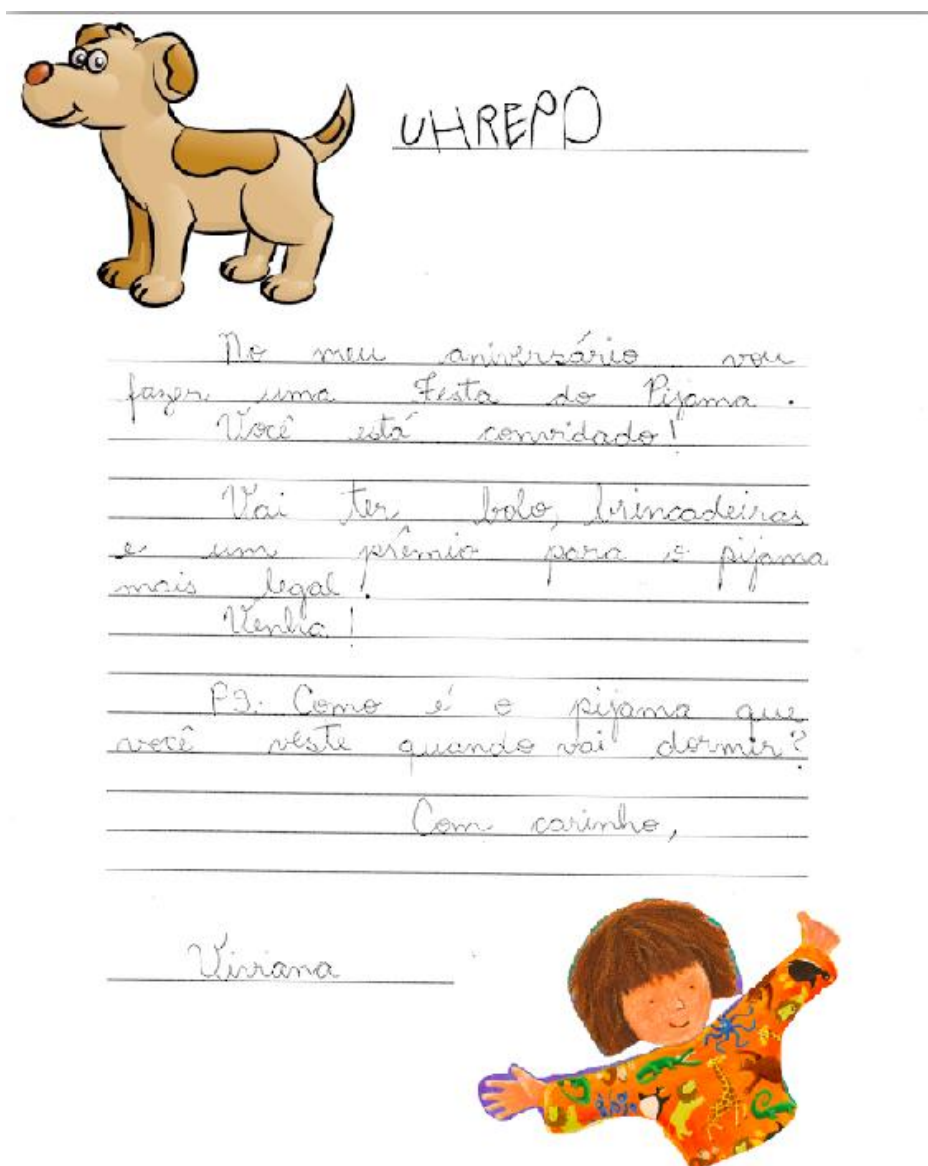 UHREPO
No meu aniversário vou
fazer uma Festa do Pijama.
Você está convidado!
Vai ter bolo, brincadeiras
e um prêmio para o pijama
mais legal!
Venha!
PS. Como é o pijama que
você veste quando vai dormir?
Com carinho,
Viviana